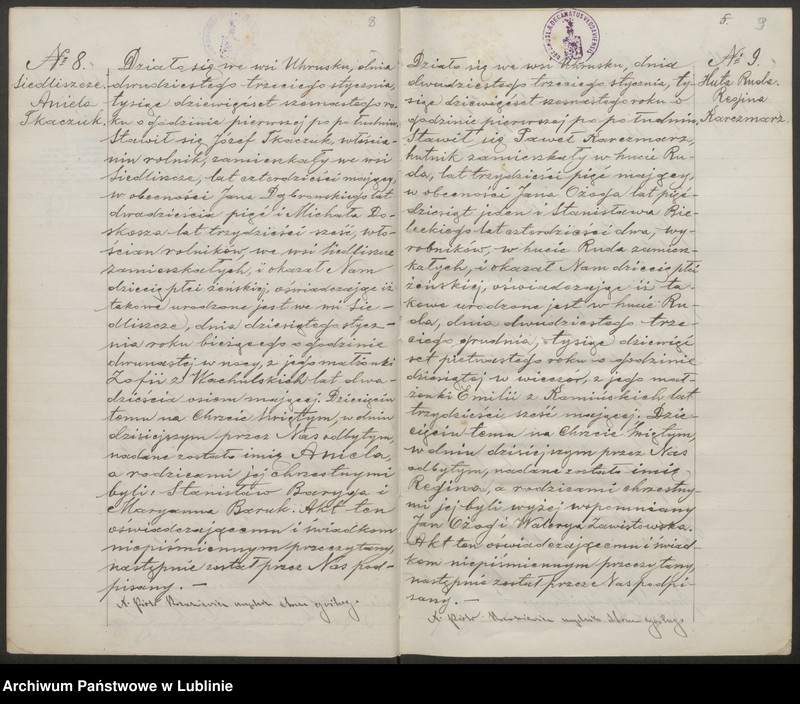 8
№ 8.
Siedliszcze.
Aniela
Tkaczuk.
Działo się we wsi Uhrusku, dnia
dwudziestego trzeciego stycznia,
tysiąc dziewięćset szesnastego ro-
ku o godzinie pierwszej po południu.
Stawił się Józef Tkaczuk, włościa-
nin rolnik, zamieszkały we wsi
Siedliszcze, lat czterdzieści mający,
w obecności Jana Dąbrowskiego lat
dwadzieścia pięć i Michała Do-
kosza lat trzydzieści sześć, wło-
ścian rolników, we wsi Siedliszcze
zamieszkałych, i okazał Nam
dziecię płci żeńskiej, oświadczając iż
takowe urodzone jest we wsi Sie-
dliszcze, dnia dziesiątego stycz-
nia roku bieżącego o godzinie
dwunastej w nocy, z jego małżonki
Zofii z Wachulskich lat dwa-
dzieścia osiem mającej. Dziecięciu
temu na Chrzcie Świętym, w dniu
dzisiejszym przez Nas odbytym,
nadane zostało imię Aniela,
a rodzicami jej chrzestnymi
byli: Stanisław Baryga i
Maryanna Baruk. Akt ten
oświadczającemu i świadkom
niepiśmiennym przeczytany,
następnie został przez Nas pod-
pisany. —
X. Piotr
5. 9
№ 9.
Huta Ruda.
Regina
Karczmarz.
Działo się we wsi Uhrusku, dnia
dwudziestego trzeciego stycznia, ty-
siąc dziewięćset szesnastego roku o
godzinie pierwszej po południu.
Stawił się Paweł Karczmarz,
hutnik zamieszkały w hucie Ru-
da, lat trzydzieści pięć mający,
w obecności Jana Ożoga lat pięć-
dziesiąt jeden i Stanisława Bie-
leckiego lat czterdzieści dwa, wy-
robników, w hucie Ruda zamiesz-
kałych, i okazał Nam dziecię płci
żeńskiej, oświadczając iż ta-
kowe urodzone jest w hucie Ru-
da, dnia dwudziestego trze-
ciego grudnia, tysiąc dziewięć
set piętnastego roku o godzinie
dziesiątej w wieczór, z jego mał-
żonki Emilii z Kamińskich lat
trzydzieści sześć mającej. Dzie-
cięciu temu na Chrzcie Świętym,
w dniu dzisiejszym przez Nas
odbytym, nadane zostało imię
Regina, a rodzicami chrzestny-
mi jej byli wyżej wspomniany
Jan Ożog i Walerya Zawistowska.
Akt ten oświadczającemu i świad-
kom niepiśmiennym przeczytany,
następnie został przez Nas podpi-
sany. —
X. Piotr
Archiwum Państwowe w Lublinie